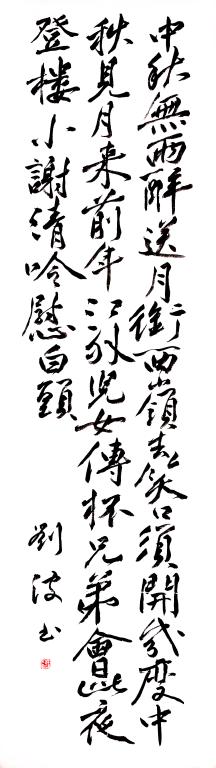 中秋無雨醉送月銜西嶺去笑口須開幾度中
秋見月来前年江外児女傳杯兄弟會此夜
登楼小謝清吟慰白頭
劉波书